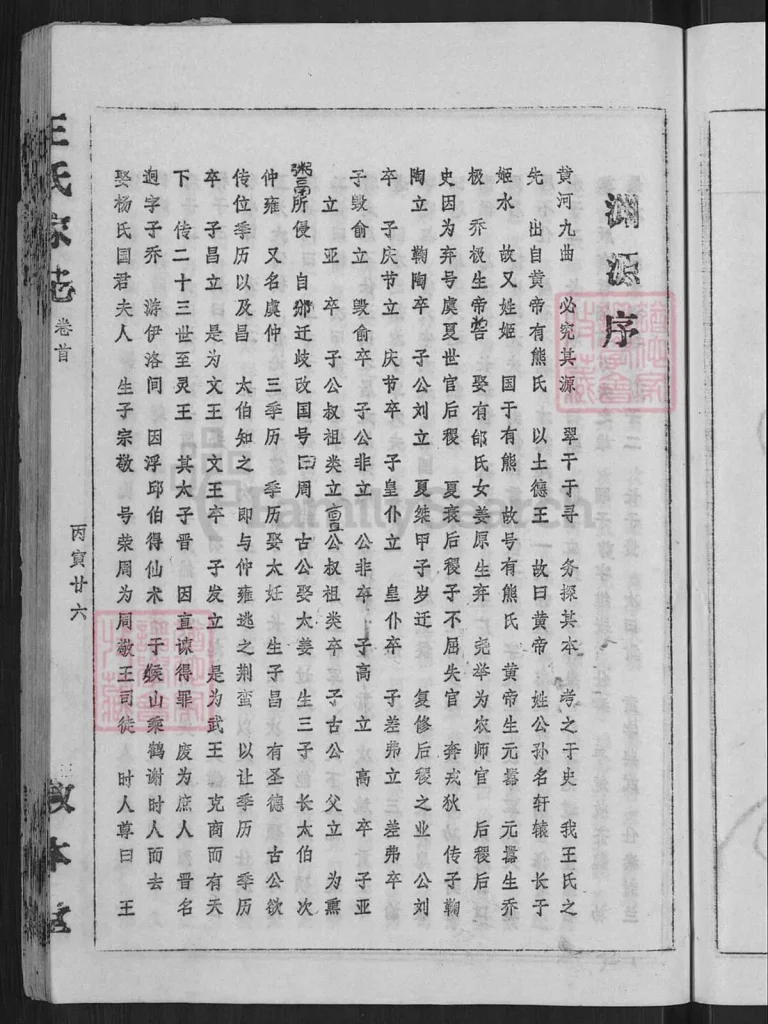 渊源序
黄河九曲 必究其源 翠干于寻 务探其本 考之于史 我王氏之
先 出自黄帝有熊氏 以土德王 故曰黄帝 姓公孙名轩辕 长于
姬水 故又姓姬 国于有熊 故号有熊氏 黄帝生元嚣 元嚣生乔
极 乔极生帝喾 娶有邰氏女姜原生弃 尧举为农师官 后稷后
史因为弃号虞夏世官后稷 夏衰后稷子不屈失官 奔戎狄 传子鞠
陶立 鞠陶卒 子公刘立 夏桀甲子岁迁 复修后稷之业 公刘
卒 子庆节立 庆节卒 子皇仆立 皇仆卒 子差弗立三差弗卒
子毁俞立 毁俞卒 子公非立 公非卒 子高立 高卒 子亚
立 亚卒 子公叔祖类立 公叔祖类卒 子古公下父立 为熏
粥所侵 自邠迁岐改国号曰周 古公娶太姜生三子 长太伯 次
仲雍 又名虞仲 三季历 季历娶太妊 生子昌 有圣德 古公欲
传位季历以及昌 太伯知之 即与仲雍逃之荆蛮 以让季历 季历
卒 子昌立 是为文王 文王卒 子发立 是为武王 克商而有天
下 传二十三世至灵王 其太子晋 因直谏得罪 废为庶人 晋名
迥字子乔 游伊洛间 因浮邱伯得仙术 于缑山乘鹤谢时人而去
娶杨氏国君夫人 生子宗敬 号荣周为周敬王司徒 时人尊曰 王
王氏家志
卷首
丙寅廿六
敦本堂
FamilySearch